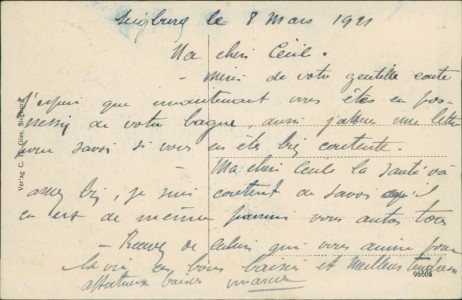 Siegburg le 8 Mars 1921
Ma cheri Cecile.
- Merci de votre gentille carte
J'espère que maintenant vous êtes en pos-
session de votre bague, aussi j'attends une lettre
pour savoir si vous en êtes bien contente.
- Ma cheri Cecile la santé va
assez bien, je suis content de savoir qu'il
en est de même pour vous autres tous
- Recevez de celui qui vous aime pour
la vie ces bons baisers et meilleurs
affectueux baisers
Verlag C.
96606